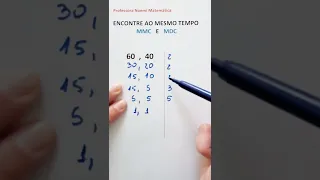 Professora Noemi Matemática
ENCONTRE AO MESMO TEMPO
MMC E MDC
60 , 40 2
30, 20 2
15, 10
15, 5 3
5, 5 5
1, 1